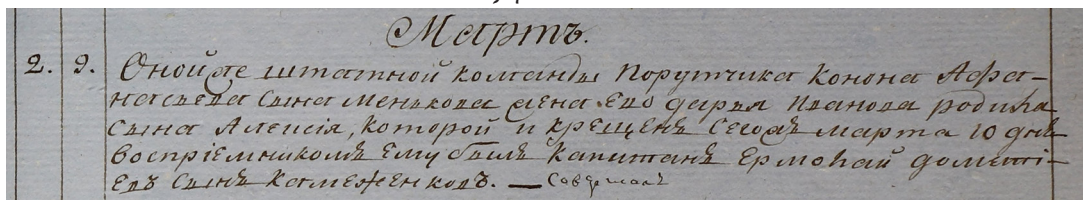 Мартъ.
2. 9. Оной же штатной команды Порутчика Конона Афа-
насьева сына Менькова жена Ево дарья Иванова родила
сына Алексія, которой и крещенъ сегожъ марта 10 дня
воспріемникомъ Ему былъ Капитанъ Ермолай доменті-
Евъ сынъ Камеженковъ. —